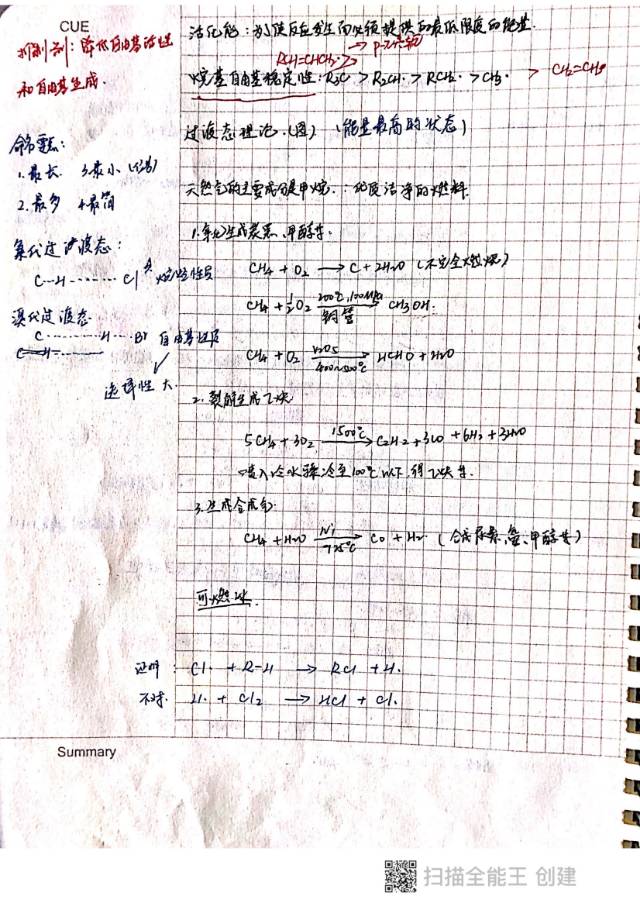 CUE
抑制剂：降低自由基活性
和自由基生成.
命名：
1.最长 3.最小（编号）
2.最多 4.最简
氯代过渡态：
C--H------Cl
溴代过渡态
C------H---Br 自由基性质
选择性大
活化能：为使反应发生而必须提供的最低限度的能量.
RCH=CHCH₂·> → p-π共轭
烷基自由基稳定性：R₃C·> R₂CH·> RCH₂·> CH₃· > CH₂=CH·
过渡态理论.（图）（能量最高的状态）
天然气的主要成分是甲烷. 优良洁净的燃料.
1.氧化生成炭黑、甲醇等.
CH₄ + O₂ → C + 2H₂O（不完全燃烧）
CH₄ + ½O₂ 200℃,100MPa 铜管 → CH₃OH.
CH₄ + O₂ V₂O₅ 400~500℃ → HCHO + H₂O
2.裂解生成乙炔
5CH₄ + 3O₂ 1500℃ → C₂H₂ + 3CO + 6H₂ + 3H₂O
喷入冷水骤冷至100℃以下,得乙炔等.
3.生成合成气
CH₄ + H₂O Ni 725℃ → CO + H₂ （合成尿素、氨、甲醇等）
可燃冰.
证明： Cl· + R-H → RCl + H·
不对. H· + Cl₂ → HCl + Cl·
Summary
扫描全能王 创建